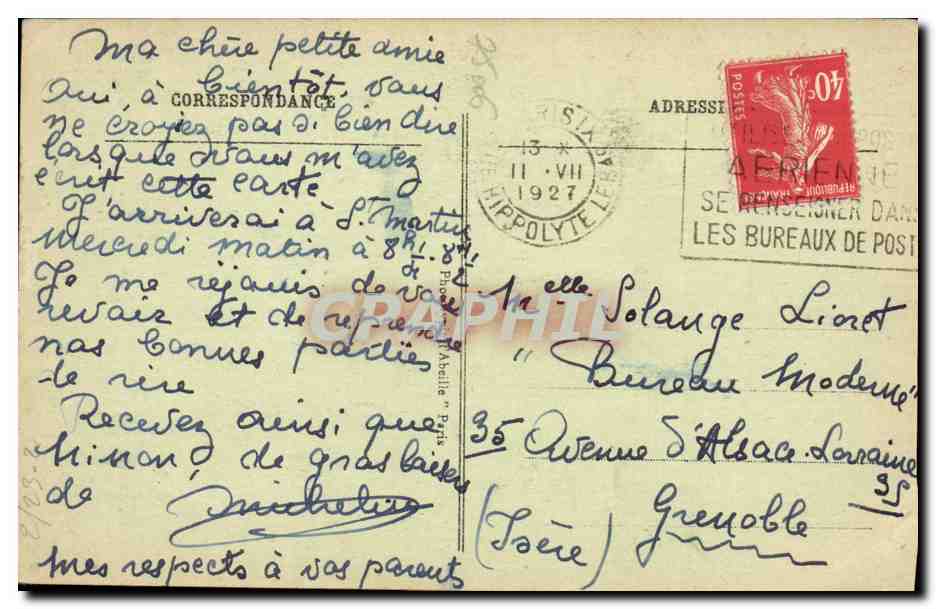 Ma chère petite amie
oui, à bientôt, vous
CORRESPONDANCE
ne croyez pas si bien dire
lorsque vous m'avez
écrit cette carte
J'arriverai à St Martin
mercredi matin à 8h
Je me réjouis de vous
revoir et de reprendre
nos bonnes parties
de rire
Recevez ainsi que
Ninon, de gros baisers
de Micheline
mes respects à vos parents
Abeille " Paris
ADRESS
40c
POSTES
REPUBLIQUE FRANCAISE
PARIS VI
13 *
11 · VII
1927
RUE HIPPOLYTE LEBAS
AERIENNE
SE RENSEIGNER DANS
LES BUREAUX DE POST
Melle Solange Lioret
" Bureau Moderne "
35 Avenue d'Alsace-Lorraine
35
Grenoble
(Isère)
CPAPHIL